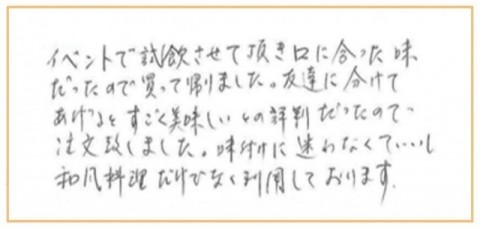 イベントで試飲させて頂き口に合った味
だったので買って帰りました。友達に分けて
あげるとすごく美味しいとの評判だったので、
注文致しました。味付けに迷わなくていいし
和風料理だけでなく利用しております。